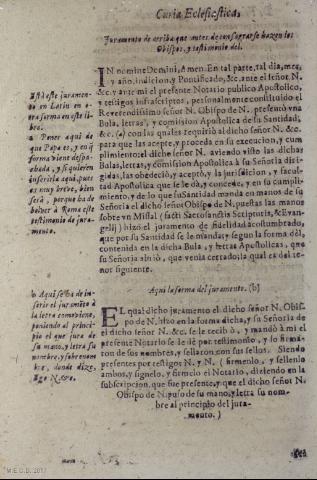 Curia Eclesiastica,
Juramento de arriba que antes de consagrarse hazen los
Obispos, y testimonio del.
IN nomine Domini, Amen. En tal parte, tal dia, mes,
y año, indicion, y Pontificado, &c. ante el señor N.
&c. y ante mi el presente Notario publico Apostolico,
y testigos infrascriptos, personalmente constituido el
Reverendissimo señor N. Obispo de N. presentò vna
Bula, letras, y comission Apostolica de su Santidad,
&c. (a) con las quales requiriò al dicho señor N. &c.
para que las accepte, y proceda en su execucion, y cum
plimiento: el dicho señor N. aviendo visto las dichas
Bulas, letras, y comission Apostolica à su Señoria diri-
gidas, las obedeciò, y aceptò, y la jurisdicion, y facul-
tad Apostolica que se le dà, y concede, y en su cumpli-
miento, y de lo que su Santidad manda en manos de su
Señoria el dicho señor Obispo de N. puestas las manos
sobre vn Missal (tactis Sacrosanctis Scripturis, & Evan-
gelij) hizo el juramento de fidelidad acostumbrado,
que por su Santidad se le manda, y segun la forma del,
contenida en la dicha Bula, y letras Apostolicas, que
su Señoria abriò, que venia cerrado, la qual es del te-
nor siguiente.
Està este juramen-
to en Latin en o-
tra forma en este li-
bro.
a Poner aqui de
que Papa es, y en q
forma viene des-
pachada, y si quieren
inserirla aqui, pues
es muy breve, bien
serà, porque ha de
bolver à Roma este
testimonio de jura-
mento.
Aqui la forma del juramento. (b)
b Aqui se ha de in-
serir el juramẽto à
la letra como viene,
poniendo al princi-
pio el que jura de
su mano, y letra su
nombre, y sobrenom
bre, donde dize,
Ego N. &c.
EL qual dicho juramento el dicho señor N. Obis-
po de N. hizo en la forma dicha, y su Señoria de
el dicho señor N. &c. se le recibiò, y mandò à mi el
presente Notario se le dè por testimonio, y lo firma-
ron de sus nombres, y sellaron con sus sellos. Siendo
presentes por testigos N. y N. (firmenlo, y sellenlo
ambos, y signelo, y firmelo el Notario, diziendo en la
subscripcion, que fue presente, y que el dicho señor N.
Obispo de N. puso de su mano, y letra su nom-
bre al principio del jura-
mento.)
M.E.C.D. 2017